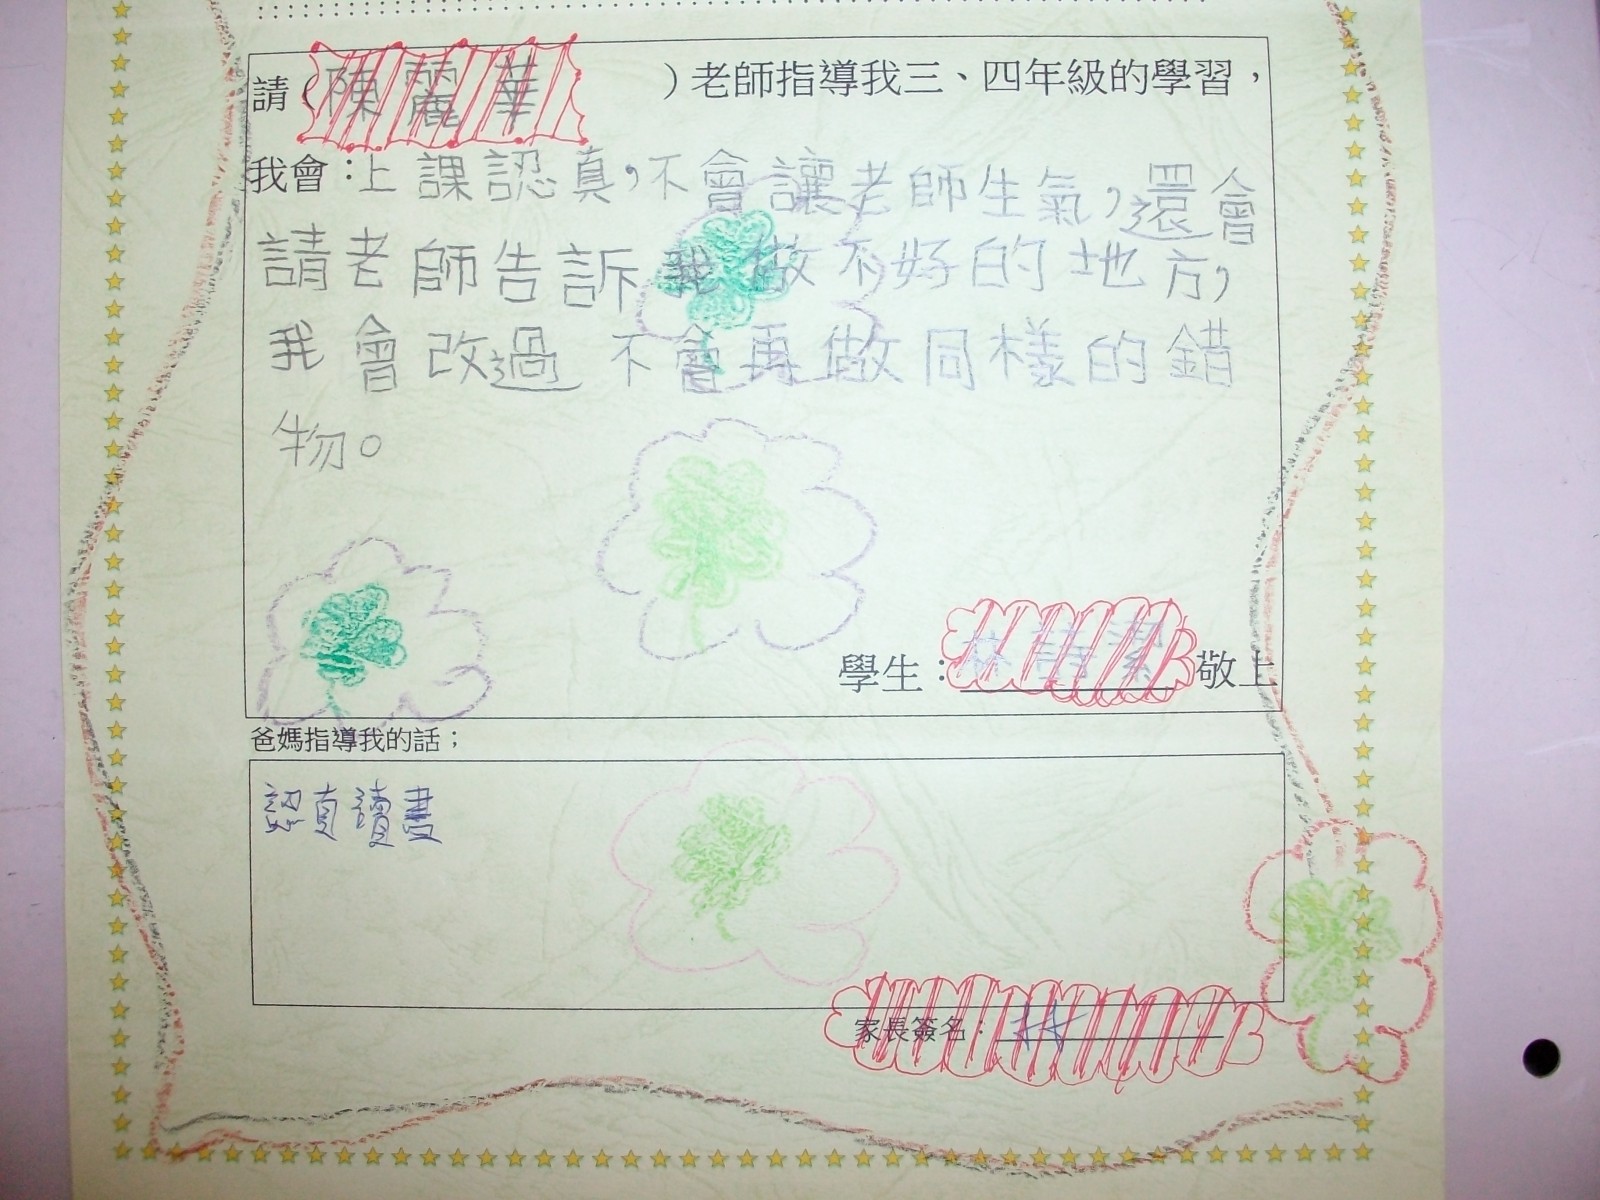 請(陳麗華)老師指導我三、四年級的學習，
我會：上課認真，不會讓老師生氣，還會
請老師告訴我做不好的地方，
我會改過 不會再做同樣的錯
物。
學生：敬上
爸媽指導我的話；
認真讀書
家長簽名：林